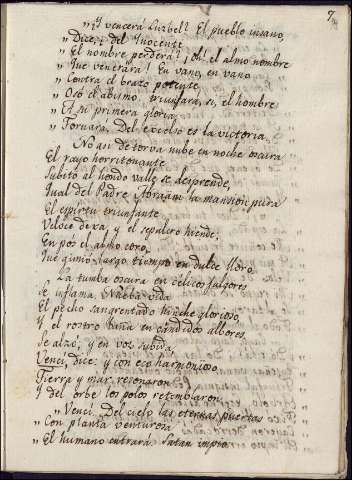 7
„ ¡Y vencerá Luzbel! El pueblo insano,
„ Dice, ¡ del Inocente
„ El nombre perderá! ¡Oh! el almo nombre
„ Fue venerará! En vano, en vano
„ Contra el brazo potente
„ Osó el abismo: triunfará, si, el hombre
„ A su primera gloria
„ Tornará: Del excelso es la victoria.
No asi de torva nube en noche oscura
El rayo horritonante
Subito al hondo valle se desprende,
Qual del Padre Abraam la mansion pura
El espiritu triunfante
Veloce dexa, y el sepulcro hiende,
En pos el almo coro,
Que gimió largo tiempo en dulce lloro.
La tumba oscura en célicos fulgores
Se inflama. Nueva vida
El pecho sangrentado hinche glorioso,
Y el rostro baña en cándidos albores.
Se alzó, y en voz subida,
Venci, dice: y con eco harmonioso
Tierra y mar resonaron
Y del orbe los polos retemblaron.
„ Venci. Del cielo las eternas puertas
„ Con planta venturosa
„ El humano entrará. Satan impio